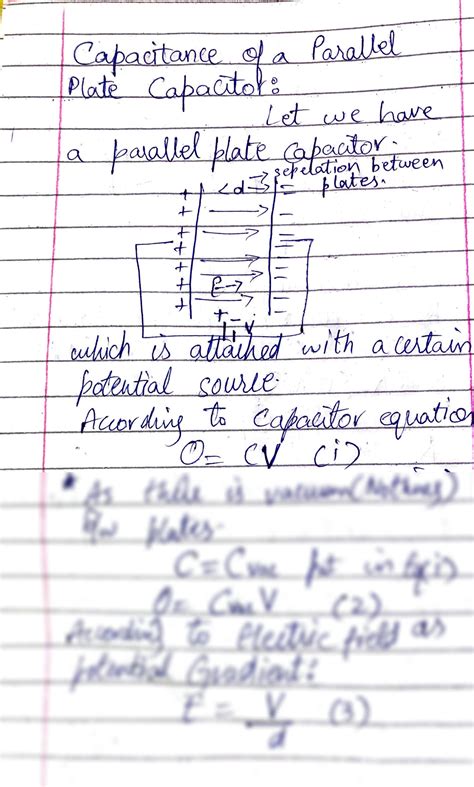 Capacitance of a Parallel
Plate Capacitor:
Let we have
a parallel plate capacitor.
<d→ → sepelation between
plates.
+ + + + + + +
E→
+ - V
which is attached with a certain
potential source.
According to capacitor equation
Q = CV (i)
* As there is vacuum (Nothing)
b/w plates.
C = Cvac put in Eq(i)
Q = Cvac V (2)
According to Electric field as
potential Gradient:
E = V/d (3)